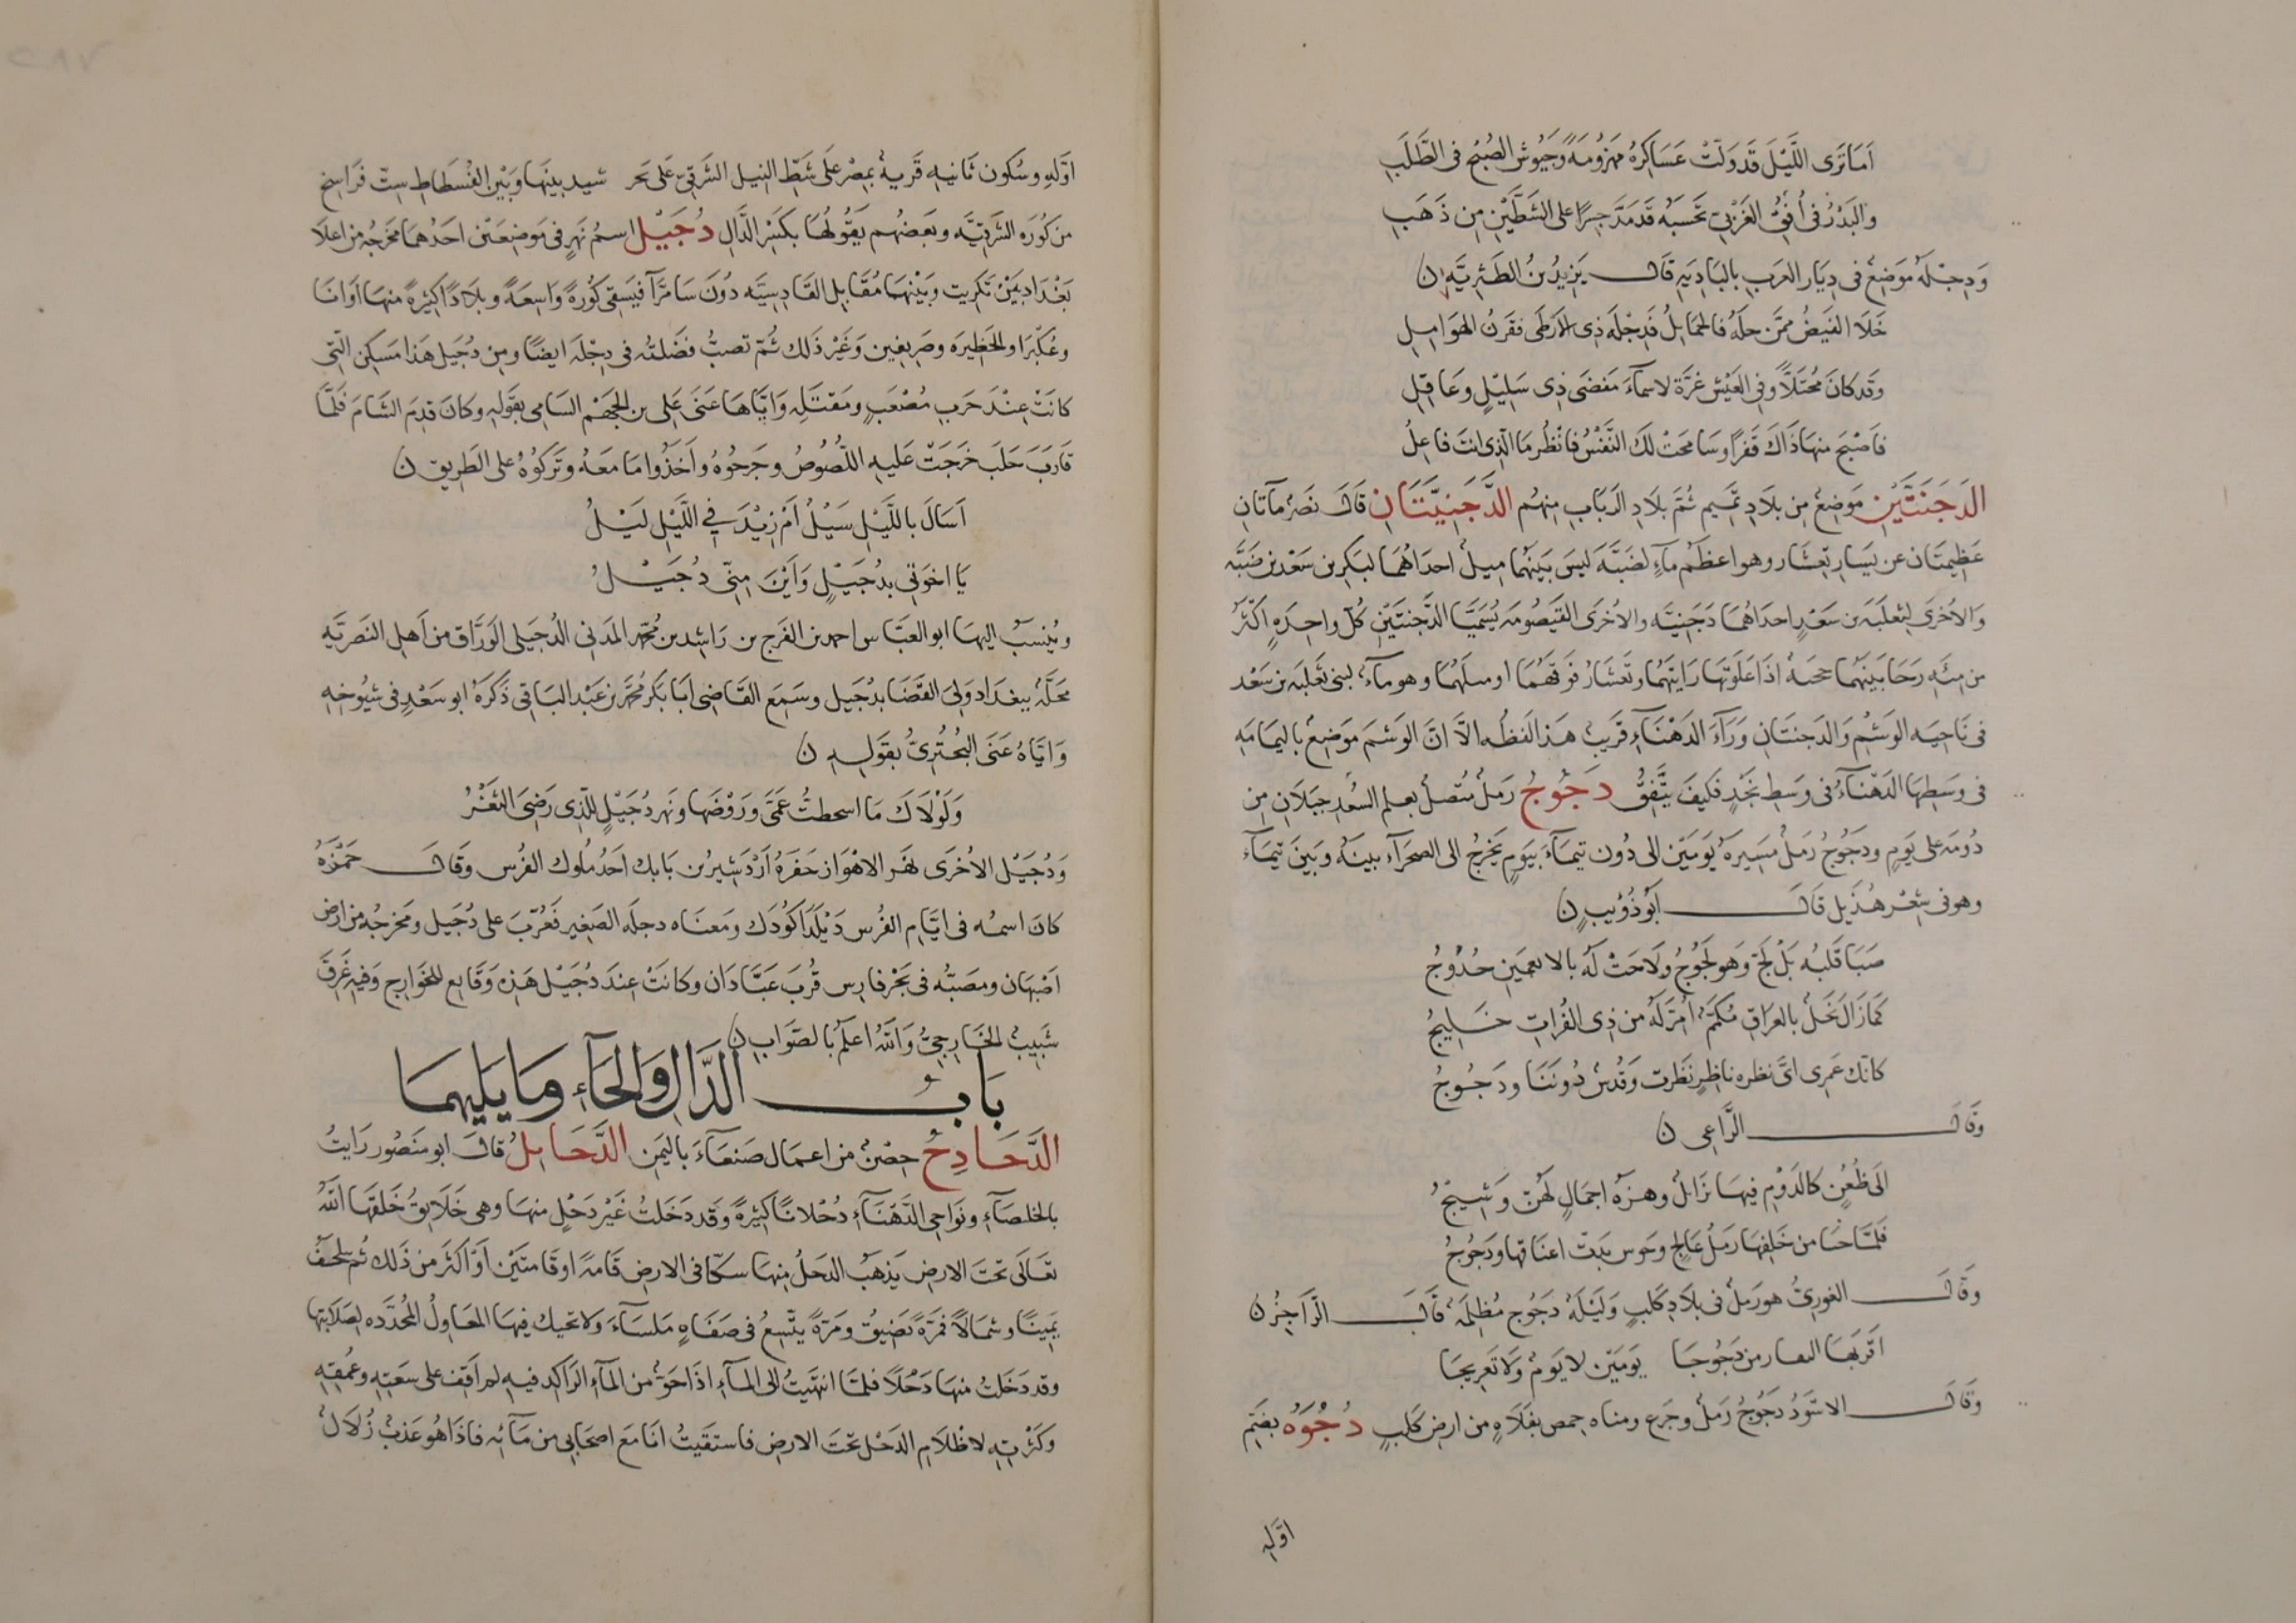 اَمَا تَرَى اللَّيْلَ قَدْ وَلَّتْ عَسَاكِرُهُ مَهْزُومَةً وَجُيُوشُ الصُبْحِ فى الطَّلَبِ
وَالبَدْرُ فى أُفُقِ الغَرْبِىّ تَحْسَبُهُ قَدْ مَدَّ جِسْرًا على الشَطَّيْنِ مِن ذَهَبِ
وَدِجْلَة مَوَضِعٌ فى دِيَار العَرَبِ بالبَادِيَةِ قَالَ يَزِيدُ بنُ الطَثَرِيَّة ن
خَلَا الفَيْضُ ممَّن حلّهُ فالخمَايِلُ فَدِجْلَة ذِى الأَرْطَى فقَرنُ الهَوَامِلِ
وقد كانَ مُحْتَلًّا وفى العَيْش غرَّة لاسمآءَ مَفضَى ذِى سَلِيْلٍ وَعَاقِلِ
فاصْبَحَ منها ذَاكَ قَفرًا وسَامَحَتْ لَكَ النَّفْسُ فانْظُر مَا الّذِى انتَ فاعِلُ
الدَجَنَتَيْن مَوَضِعٌ مِن بلَادِ تَمِيم ثُمَّ بلَادِ الرِبَاب مِنهُم الدَّجَنِيَّتَانِ قَالَ نَصْر مآتانِ
عَظِيمَتَان عن يَسَار تِعشَار وهو اعظَمُ مَآءٍ لضَبَّة ليسَ بَينَهُما مِيلٌ احدَاهُمَا لبَكر بن سَعْد بن ضَبَّة
وَالاُخرَى لِثعلَبَة بن سَعْدٍ احدَاهُمَا دَجَنِيَّه والاُخرَى القَيْصُومَه يُسَمَّيَا الدَّجَنيَّتَيْنِ كُلّ واحِدَةٍ اكثَرُ
من مِئَةِ رَحَا بَينَهُمَا حجبة اذا عَلَوتهَا رَايتَهُمَا وتِعشَارُ فَوقَهُمَا او مسلهما وهو مآءٌ لبنى ثَعلَبَة بن سَعْد
فى نَاحِيَه الوَشْمِ وَالدَجَنيتَانِ وَرَآءَ الدَهْنَآءِ قَرِيبٌ هَذا لَفظُه الاّ انّ الوَشْمَ مَوَضِعٌ باليمَامَةِ
فى وسَطِهَا الدَهْنَآءُ فى وَسَطِ نَجْدٍ فكَيفَ يَتَّفِقُ دَجُوجُ رَملٌ مُتّصلٌ بعلم السُعْدِ جَبَلَانِ مِن
دُومَة على يَومٍ ودَجُوجُ رَملٌ مَسِيرَةُ يَومَيْنِ الى دُون تيمآءَ بيَوَمٍ يَخرُجُ الى الصَحرآءِ بينهُ وبَينَ تيمآءَ
وهو فى شِعْر هُذَيل قَالَ أَبُوذُؤَيبٍ ن
صَبَا قَلبُه بَلْ لَجَّ وَهو لَجُوجُ وَلَاحَتْ لَهُ بالانعمَين حُدُوجُ
كَمَا زَالَ نَخلٌ بالعِرَاقِ مُكَمّمٌ أُمِرّ لَهُ من ذِى الفُراتِ خَلِيجُ
كانّك عَمرِى اىَّ نظره ناظِرٍ نَظَرت وَقُدسٌ دُونَنَا ودَجُوجُ
وَقَالَ الرَّاعِى ن
الَى ظُعُنٍ كالدَوْمِ فيهَا تزَايلٌ وهِزّهُ اجمَالٍ لهُنّ وَشِيْجُ
فَلمَّا حَبَا من خَلفِهَا رَملُ عَالِجٍ وحَوس بَدتْ اعنَاقهَا ودَجُوجُ
وَقَالَ الغورِىّ هو رَملٌ فى بِلَادِ كَلبٍ وَلَيلَهٌ دَجُوج مُظلِمَة قَالَ الرَّاجِزُ ن
اَقْرَبهَا البقار من دَجُوجَا يَومَيْن لا يَومٌ وَلَا تَعرِيجَا
وَقَالَ الاسْوَدُ دَجُوجُ رَملٌ وجَرع ومناه حمص بفَلَاهٍ من ارض كَلبٍ دُجْوَهُ بضَمّ
اوّله
اوّلهِ وسُكُون ثَانيهِ قَريةٌ بمِصْر عَلَى شَطّ النِيل الشَرقىّ عَلَى بَحر شيد بينهَا وبَيْن الفُسْطَاطِ سِتّ فَرَاسِخ
مِن كُورَه الشَرقيَّه وبَعضُهُم يَقُولُهَا بكَسْر الدَّالِ دُجَيْل اسمُ نَهرٍ فى مَوضِعَيْن احَدُهُمَا مَخرَجُه من اعلَا
بَغْدَاد بَيْنَ تَكرِيت وبَيْنهَما مُقَابِل القَادِسيَّه دُونَ سَامَرَّآ فيَسقِى كُورَةً وَاسِعَةً وبِلَادًا كثيرةً منهَا اوَانَا
وعُكْبَرَا والحَظِيرَه وصَرِيفين وَغَيْر ذَلك ثُمّ تصبُّ فضَلتُه فى دِجْلَة ايضًا ومِن دُجَيل هَذا مَسكِن الّتى
كانَتْ عِنْدَ حَربِ مُصْعَبٍ ومَقْتَلِه وَايّاهَا عَنَى عَلِى بن الجَهْم السَامِى بقَولهِ وكانَ قدِمَ الشَامَ فَلَمَّا
قَارَبَ حَلَب خَرَجَتْ عَليهِ اللُّصُوصُ وجَرحُوهُ وأَخَذُوا مَا مَعَهُ وتَرَكوُهُ على الطَرِيق ن
اَسَالَ باللَّيْلِ سَيْلُ اَمْ زِيْدَ فِي اللَّيْلِ لَيْلُ
يَا اخوَتِى بدُجَيْلٍ وَاَيْنَ مِنِّى دُجَيْلُ
ويُنسَبُ اليهَا ابو العبَّاس احمد بن الفَرَج بن رَاشِد بن مُحمّد المَدنى الدُجَيلى الوَرَّاق من اَهلِ النَصريَّه
محَلّهٌ ببغدَاد وَلِىَ القَضَا بدُجَيل وسَمِعَ القَاضِى ابَا بَكر مُحمّد بن عَبْد البَاقى ذَكَرَهُ ابو سَعْدٍ فى شيُوخِهِ
وَايَّاهُ عَنَى البُحْتُرِىُّ بقَولِهِ ن
وَلَوْلَاكَ مَا اسحطتُ عَمَّى وَرَوْضَهَا ونَهر دُجَيْلٍ للّذِى رَضِىَ الثَغْرُ
وَدُجَيْل الاُخرَى نهَر الاهْوَاز حَفَرَهُ اَرْدَشِيرُ بن بَابك احَدُ مُلوك الفُرس وَقَالَ حَمْزَهُ
كانَ اسمُه فى ايَّامِ الفُرس دَيْلَدَا كُودَك ومَعنَاه دجلَة الصَغِير فَعُرّبَ على دُجَيل ومَخرجُه من ارض
اَصْبَهَان ومصَبّه فى بَحْر فارِس قُربَ عَبَّادَان وكانَتْ عِندَ دُجَيْل هَذِه وَقَايِع للخَوَارِج وَفيهِ غَرِقَ
شَبِيبٌ الخَارِجِىُّ وَاللَّهُ اعلَمُ بالصَوَاب ن
بَابُ الدَّالِ وَالحَآءِ وَمَا يَليهمَا
الدَّحَادِحُ حِصْنٌ من اعمَال صَنعَآءَ باليَمَن الدَّحَايِلُ قالَ ابو مَنصُور رَايتُ
بالخلصَآءِ ونَوَاحِى الدَهْنَآءِ دُحْلانًا كثِيرةً وَقَد دَخَلتُ غَيْر دَحْلٍ منهَا وهى خَلَايقُ خَلقَهَا اللَّهُ
تعَالَى تحتَ الارضِ يَذهَبُ الدَحلُ مِنهَا سكّا فى الارضِ قامَةً او قامَتَيْن اَوْ اكثَرَ من ذَلك ثُم يلحفُ
يَمِينًا وشمَالاً فمَرّةً يَضِيقُ ومَرّةً يتَّسِعُ فى صَفَاهٍ مَلسَآءَ وَلا تحيك فيهَا المعَاوِلُ المُحدَّده لصَلابَتها
وقد دَخَلتُ منهَا دَحْلاً فلمَّا انتهَيتُ الى المآءِ اذَا حَوّ من المآءِ الرَاكِد فيهِ لم اَقِف على سعَتِهِ وعُمقِهِ
وكثْرتِهِ لاظلَامِ الدَحْل تحتَ الارضِ فاستقَيتُ انَا مَعَ اصحَابى من مَآئِه فاذَا هُو عَذبٌ زُلَالٌ